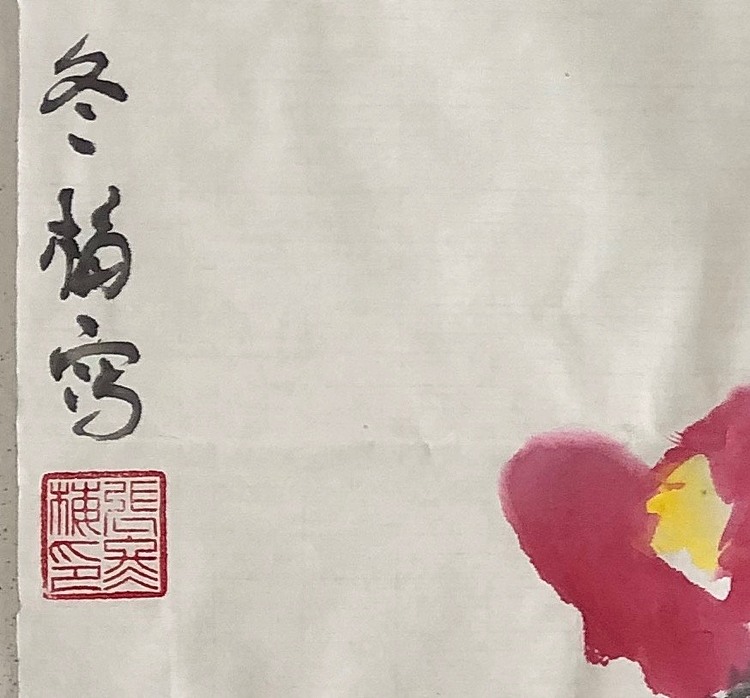 冬梅写
張冬
梅印